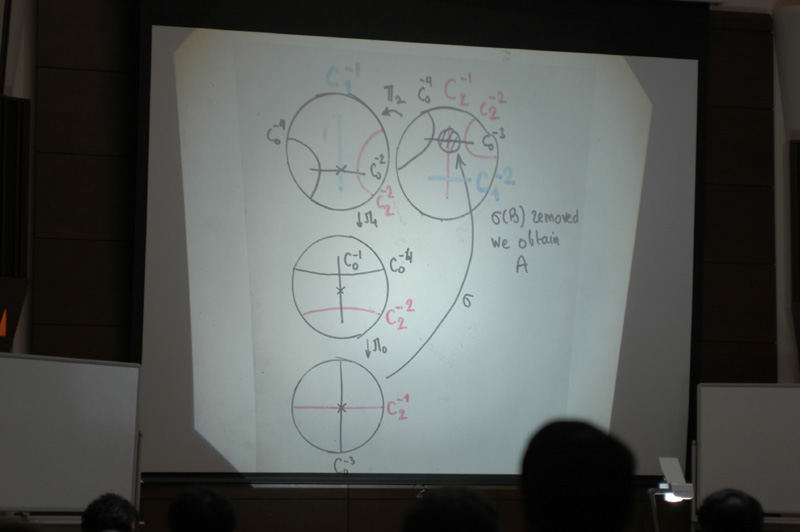 C₁⁻¹
Π₂
C₀⁻⁴
C₂⁻¹
C₂⁻²
C₀⁻⁴
C₀⁻²
C₂⁻²
C₀⁻³
C₁⁻²
↓Π₁
σ(B) removed
we obtain
A
C₀⁻¹
C₀⁻⁴
C₂⁻²
σ
↓Π₀
C₂⁻¹
C₀⁻³